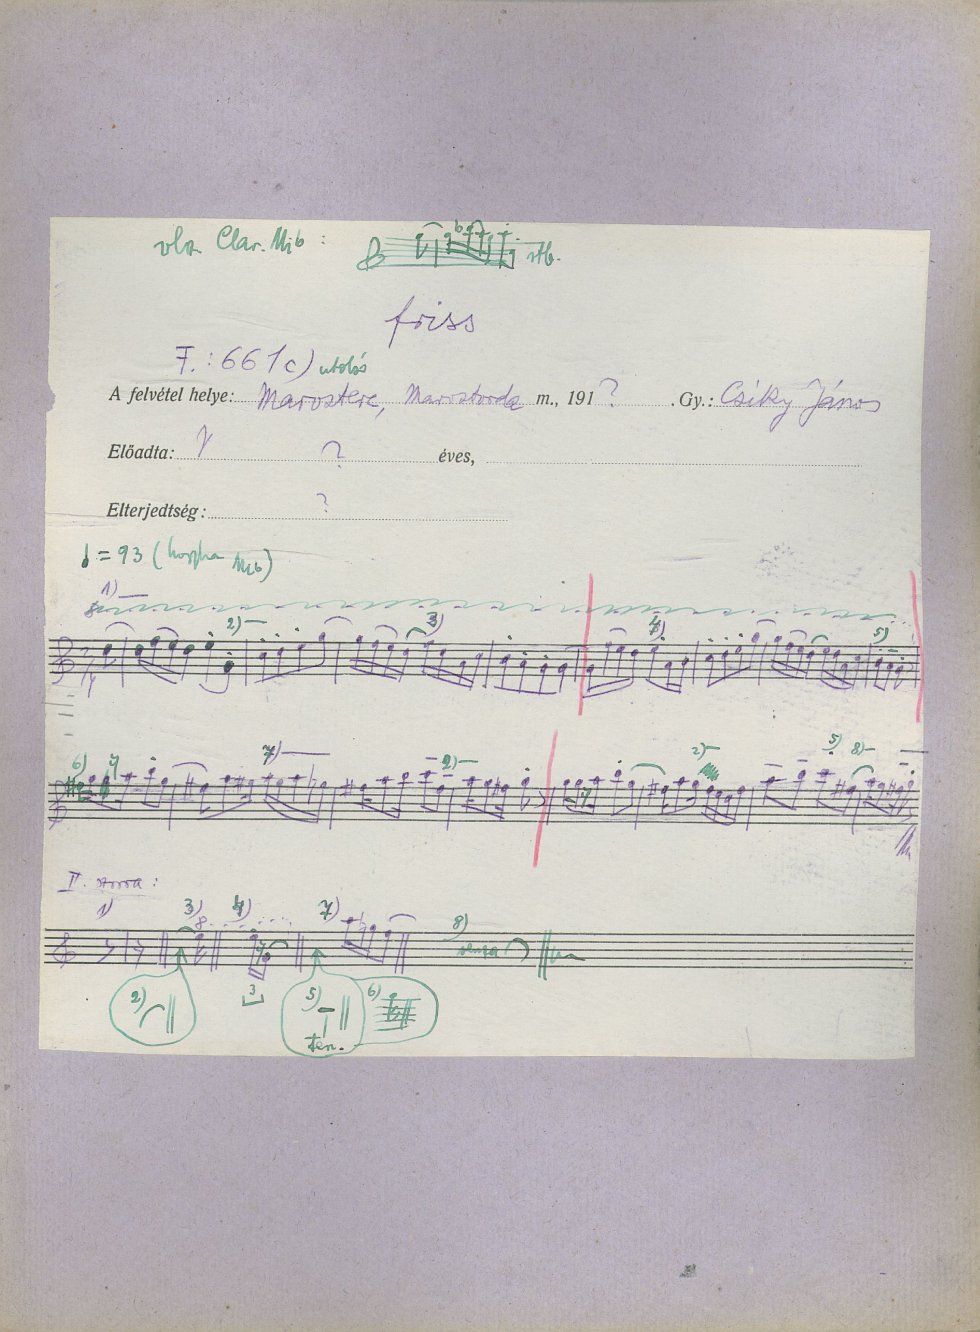 Clar. Mib :
stb.
friss
F.: 661c) utolsó
A felvétel helye: Marostere, Marostorda m., 191? . Gy.: Csíky János
Előadta: ? éves,
Elterjedtség: ?
= 93 (
1)
2) 3) 4) 5)
6) 7) 2) 2) 5) 8)
II. strófa:
1) 3) 8 4) 7) 8)
senza
2) 3 5) 6)
ten.